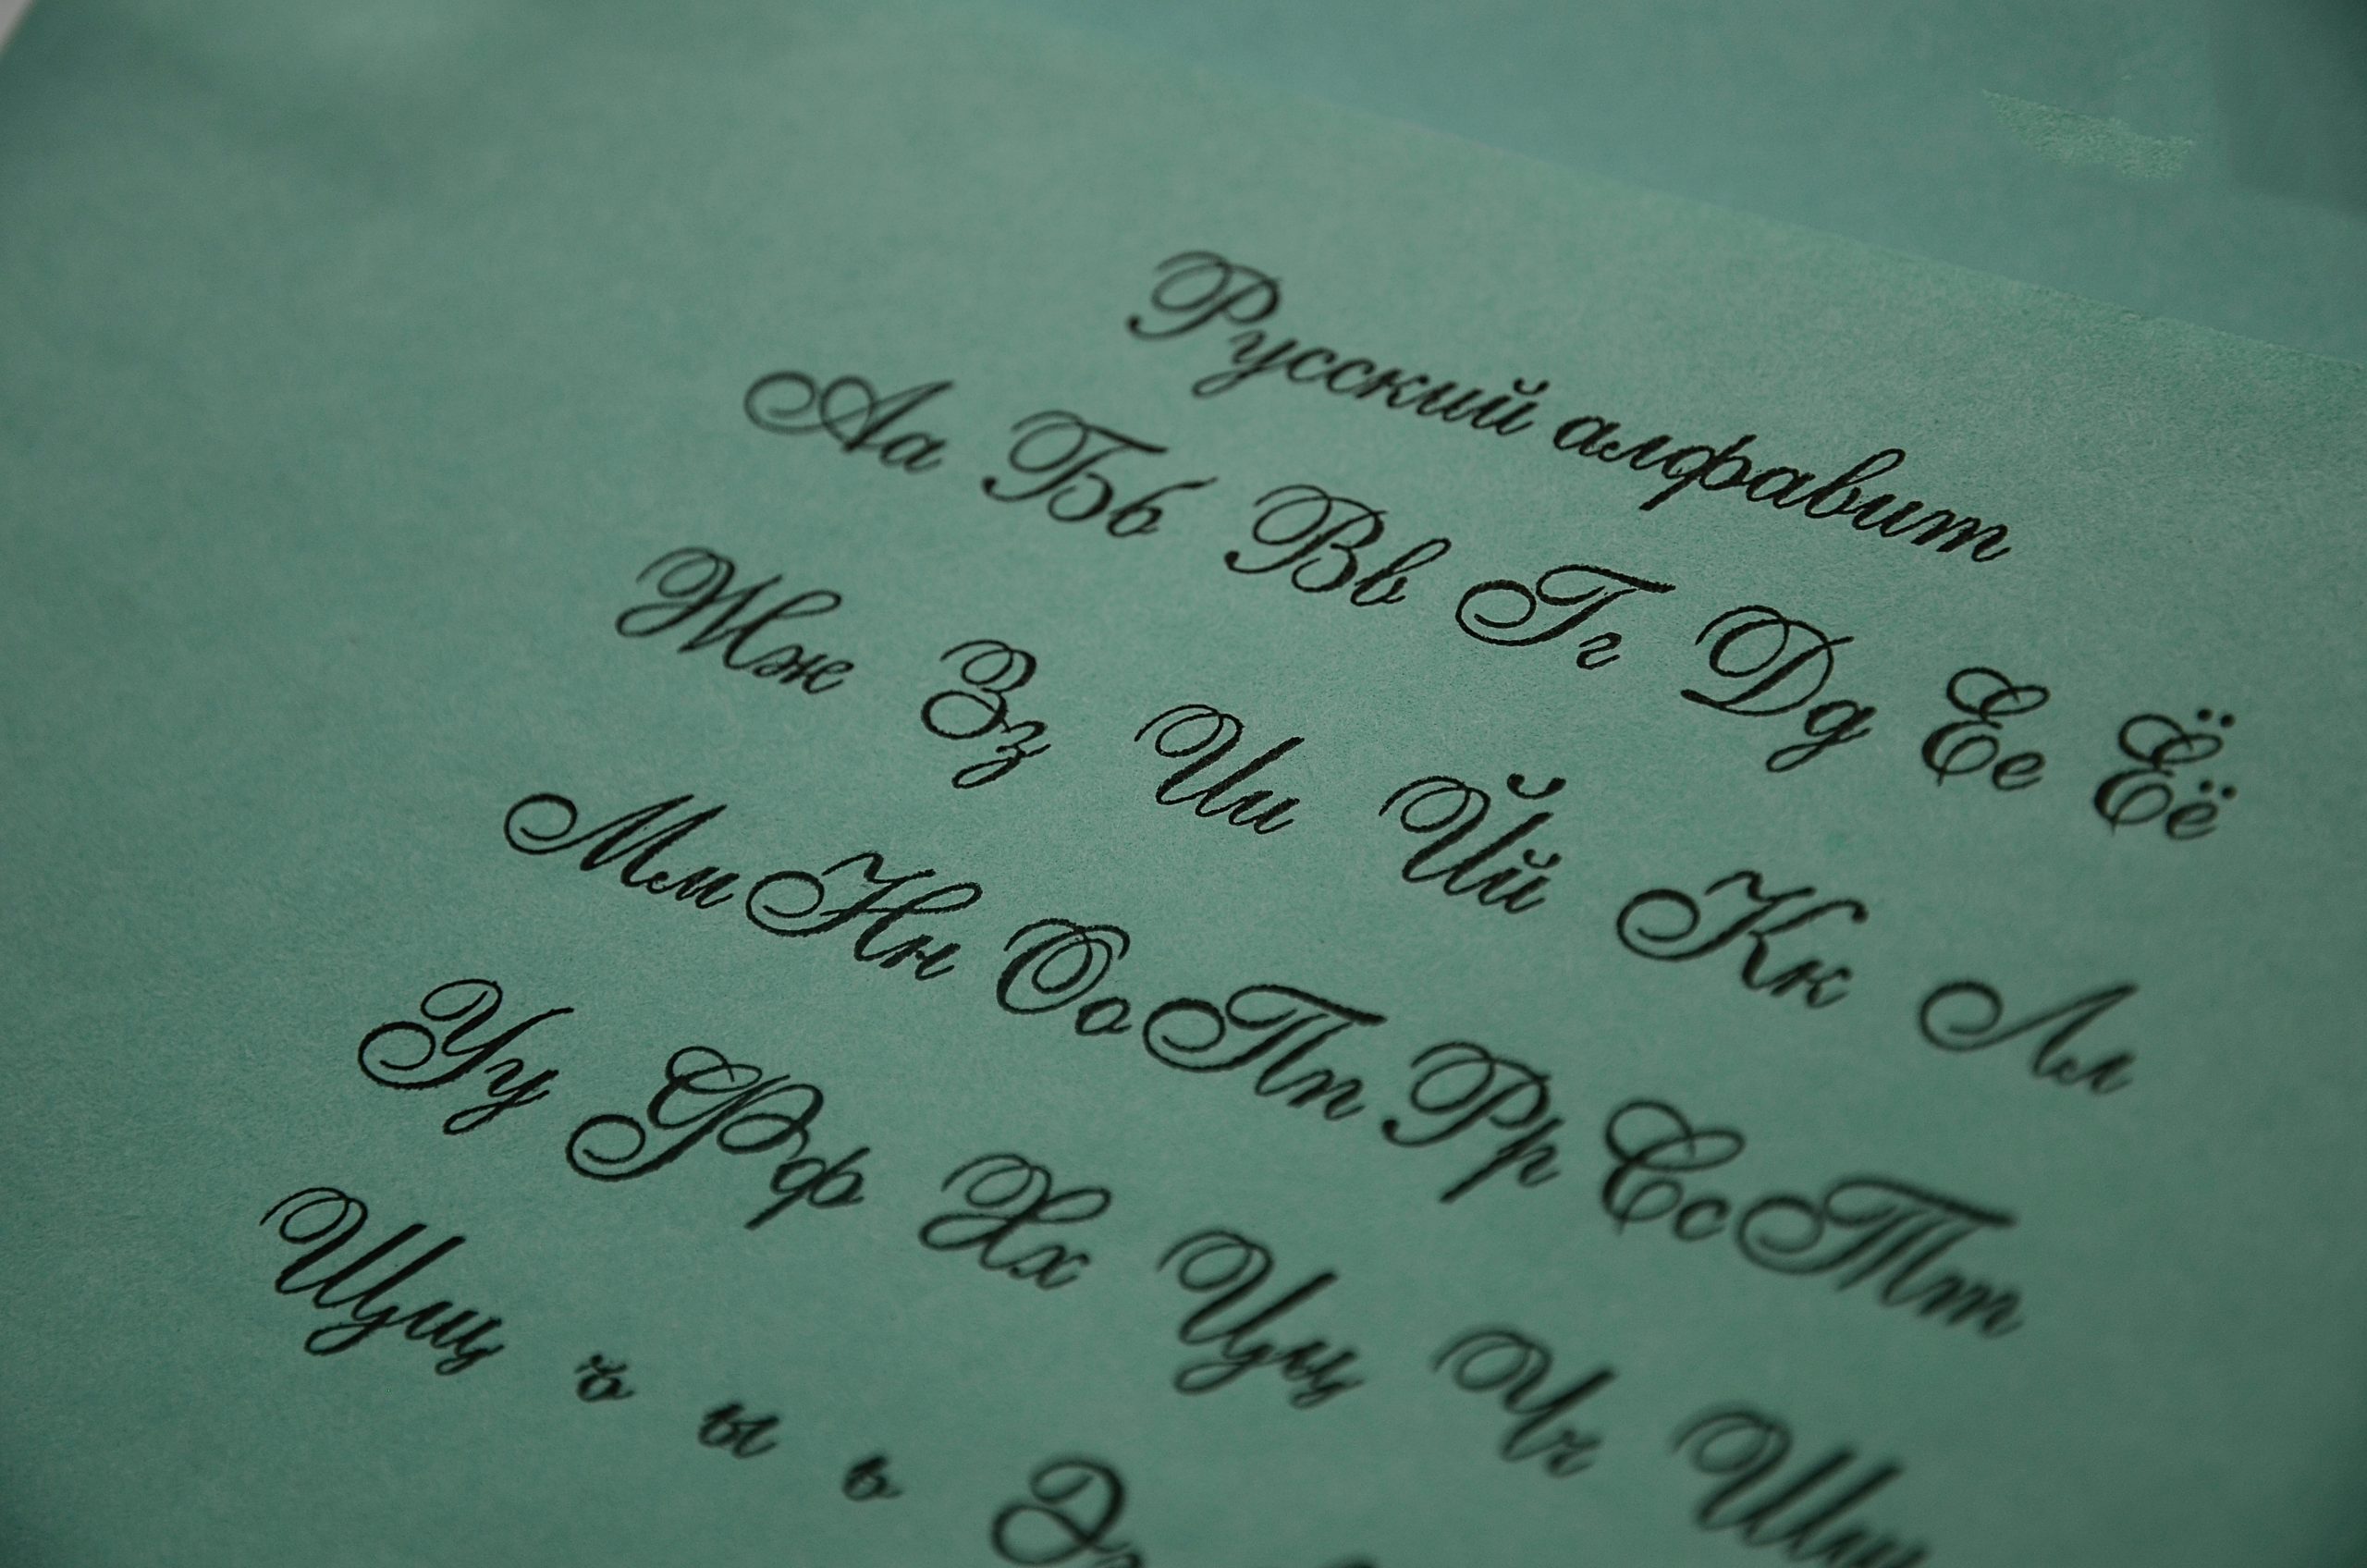 Русский алфавит
Аа Бб Вв Гг Дд Ее Ёё
Жж Зз Ии Йй Кк Лл
Мм Нн Оо Пп Рр Сс Тт
Уу Фф Хх Цц Чч Шш
Щщ ъ ы ь Ээ